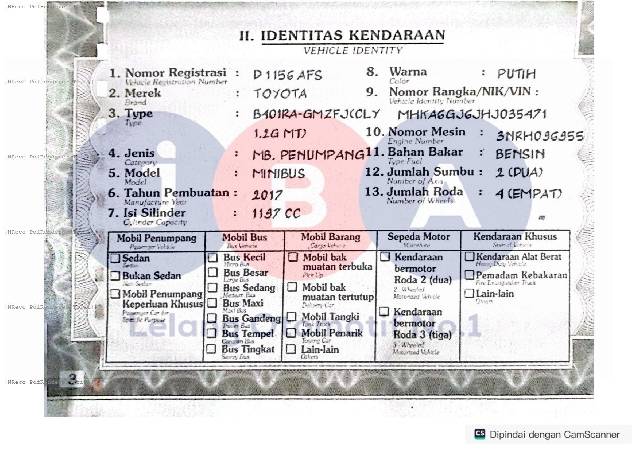 II. IDENTITAS KENDARAAN
VEHICLE IDENTITY
1. Nomor Registrasi : D 1156 AFS
Vehicle Registration Number
2. Merek : TOYOTA
Brand
3. Type : B401RA-GMZFJ(CLY
Type
1.2G MT)
4. Jenis : MB. PENUMPANG
Category
5. Model : MINIBUS
Model
6. Tahun Pembuatan : 2017
Manufacture Year
7. Isi Silinder : 1197 CC
Cylinder Capacity
8. Warna : PUTIH
Color
9. Nomor Rangka/NIK/VIN :
Vehicle Identity Number
MHKA6GJ6JHJ035471
10. Nomor Mesin : 3NRH096955
Engine Number
11. Bahan Bakar : BENSIN
Type Fuel
12. Jumlah Sumbu : 2 (DUA)
Number of Axis
13. Jumlah Roda : 4 (EMPAT)
Number of Wheels
iBA
Mobil Penumpang
Passenger Vehicle
Sedan
Sedan
Bukan Sedan
Non Sedan
Mobil Penumpang
Keperluan Khusus
Mobil Bus
Bus Vehicle
Bus Kecil
Bus Besar
Bus Sedang
Bus Maxi
Bus Gandeng
Bus Tempel
Bus Tingkat
Mobil Barang
Cargo Vehicle
Mobil bak
muatan terbuka
Pick Up
Mobil bak
muatan tertutup
Mobil Tangki
Mobil Penarik
Lain-lain
Others
Sepeda Motor
Motorbike
Kendaraan
bermotor
Roda 2 (dua)
2 - Wheeled
Motorized Vehicle
Kendaraan
bermotor
Roda 3 (tiga)
3 - Wheeled
Motorized Vehicle
Kendaraan Khusus
Kendaraan Alat Berat
Heavy Duty Vehicle
Pemadam Kebakaran
Lain-lain
Others
3
CS Dipindai dengan CamScanner